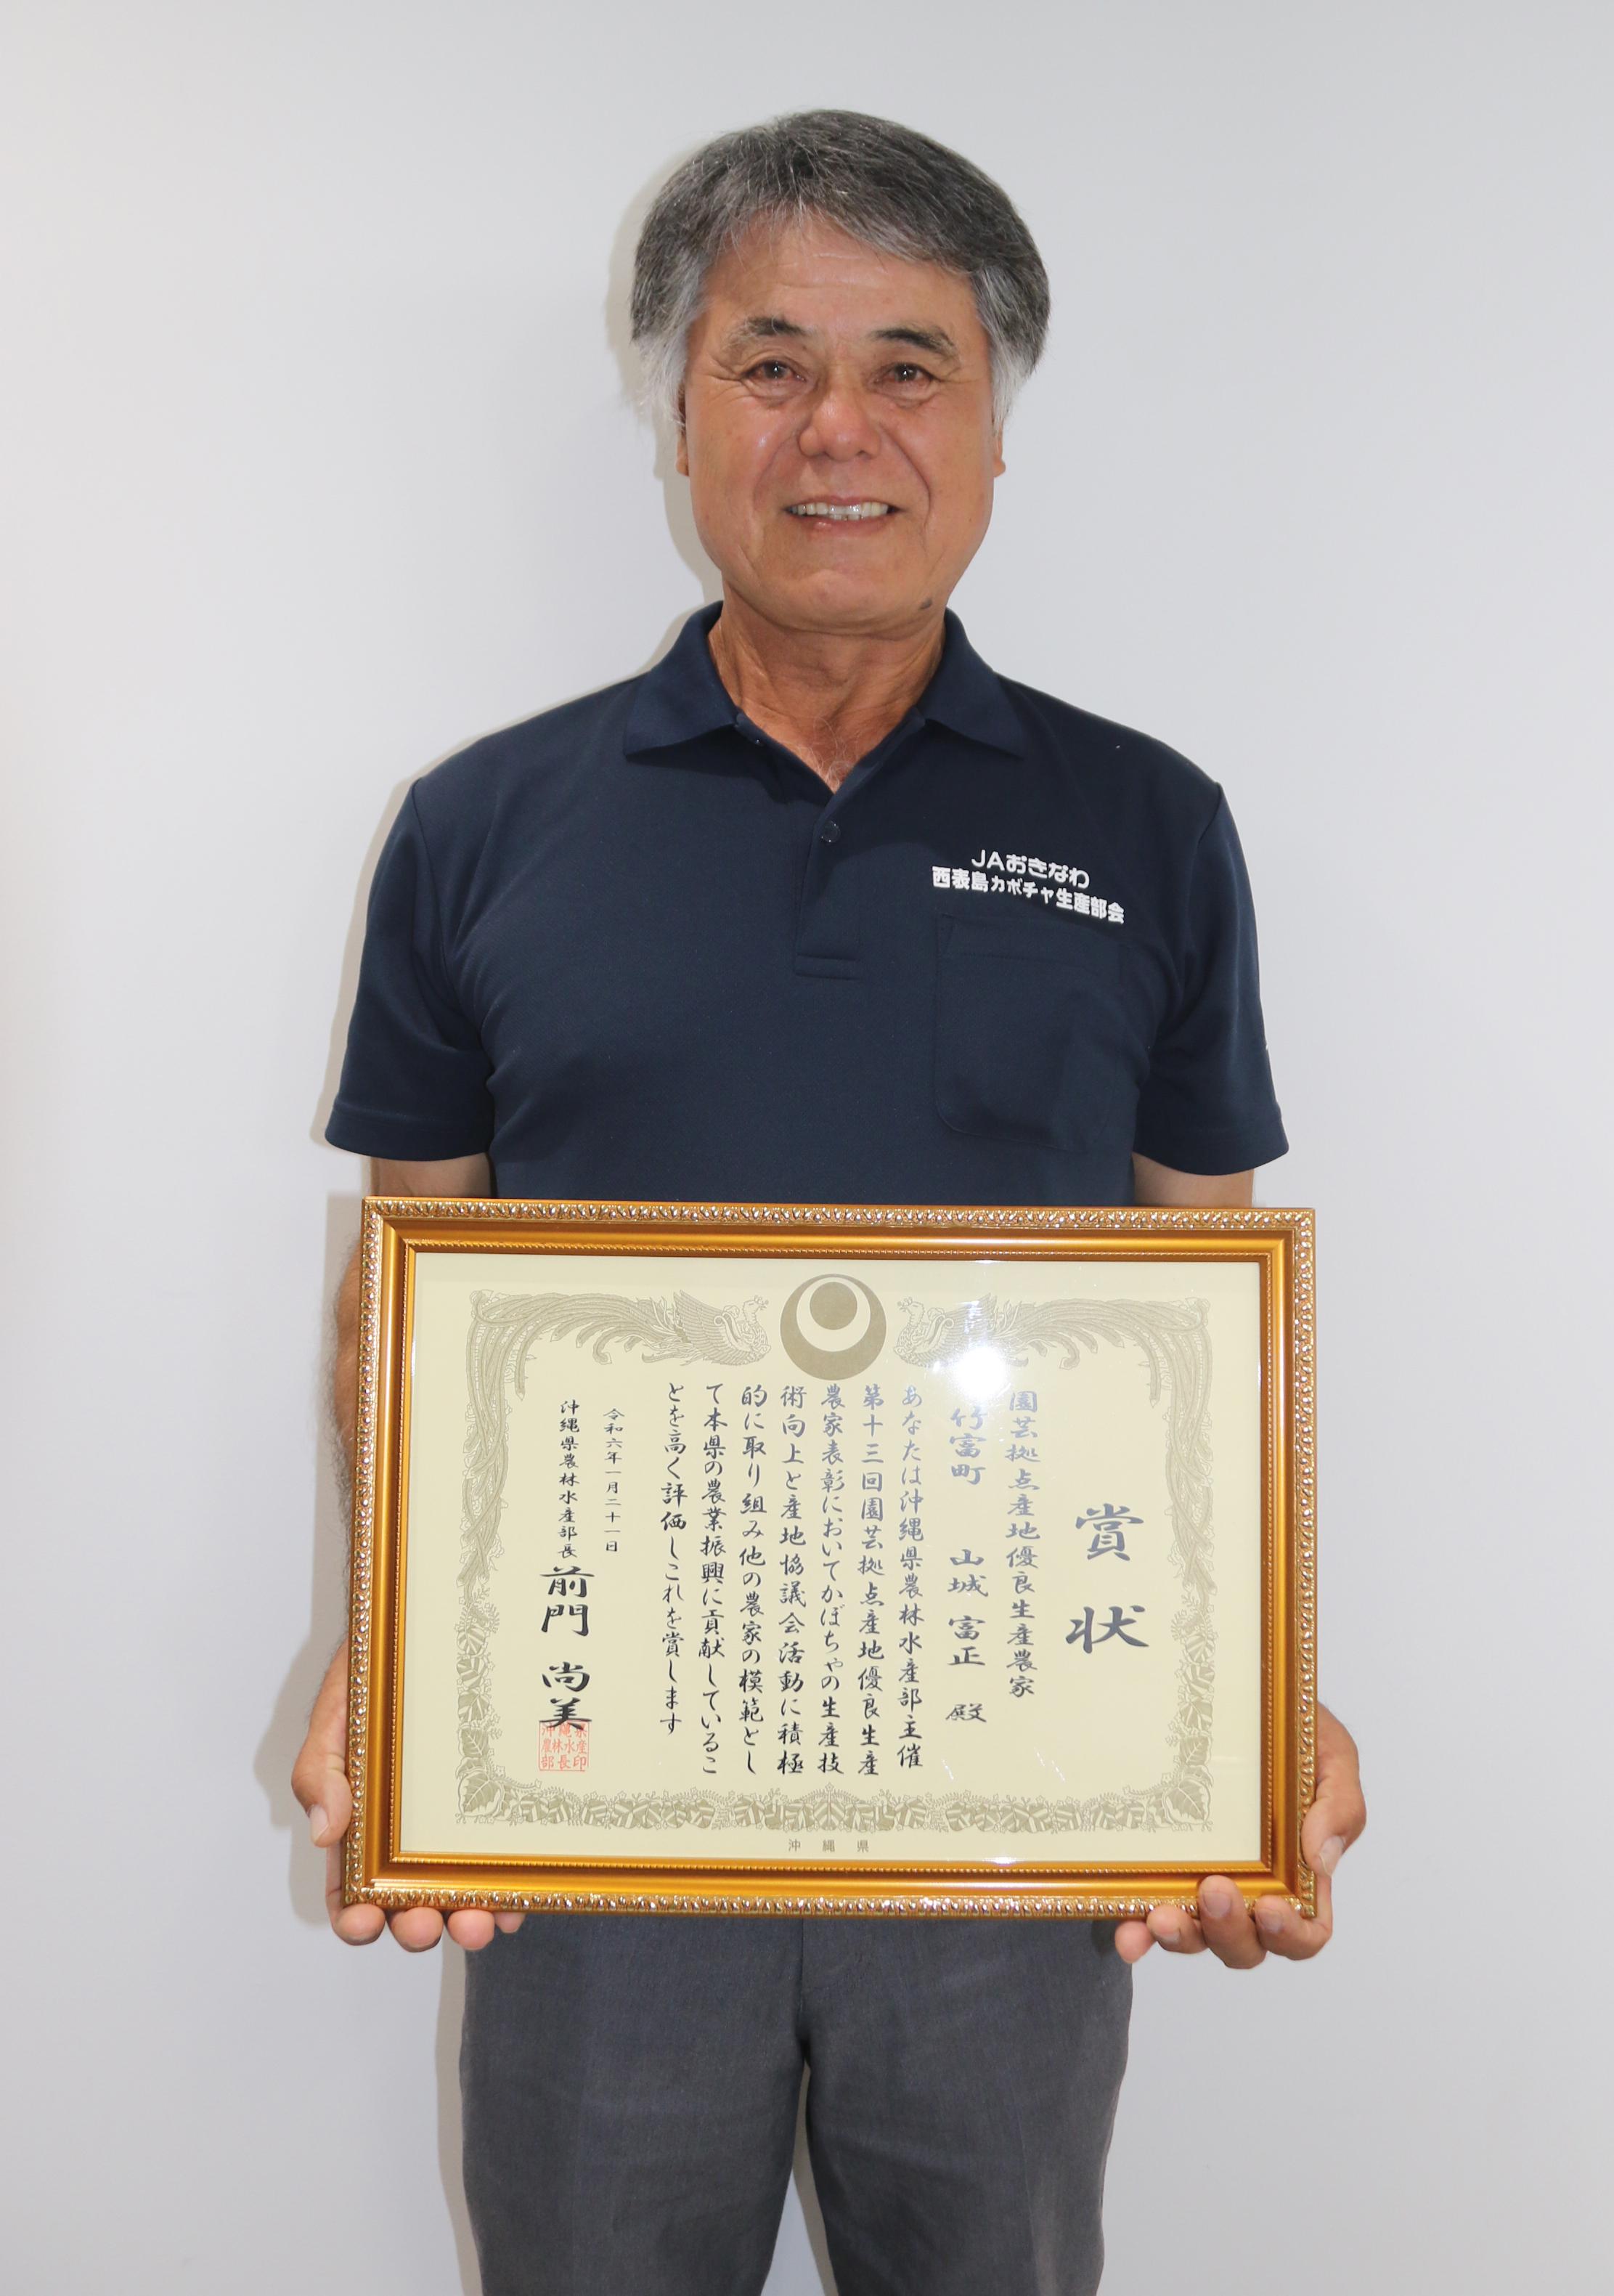 JAおきなわ
西表島カボチャ生産部会
賞状
園芸拠点産地優良生産農家
竹富町 山城 富正 殿
あなたは沖縄県農林水産部主催
第十三回園芸拠点産地優良生産
農家表彰においてかぼちゃの生産技
術向上と産地協議会活動に積極
的に取り組み他の農家の模範とし
て本県の農業振興に貢献しているこ
とを高く評価しこれを賞します
令和六年一月二十一日
沖縄県農林水産部長 前門 尚美
沖縄県
農林水産
部長印
沖縄県